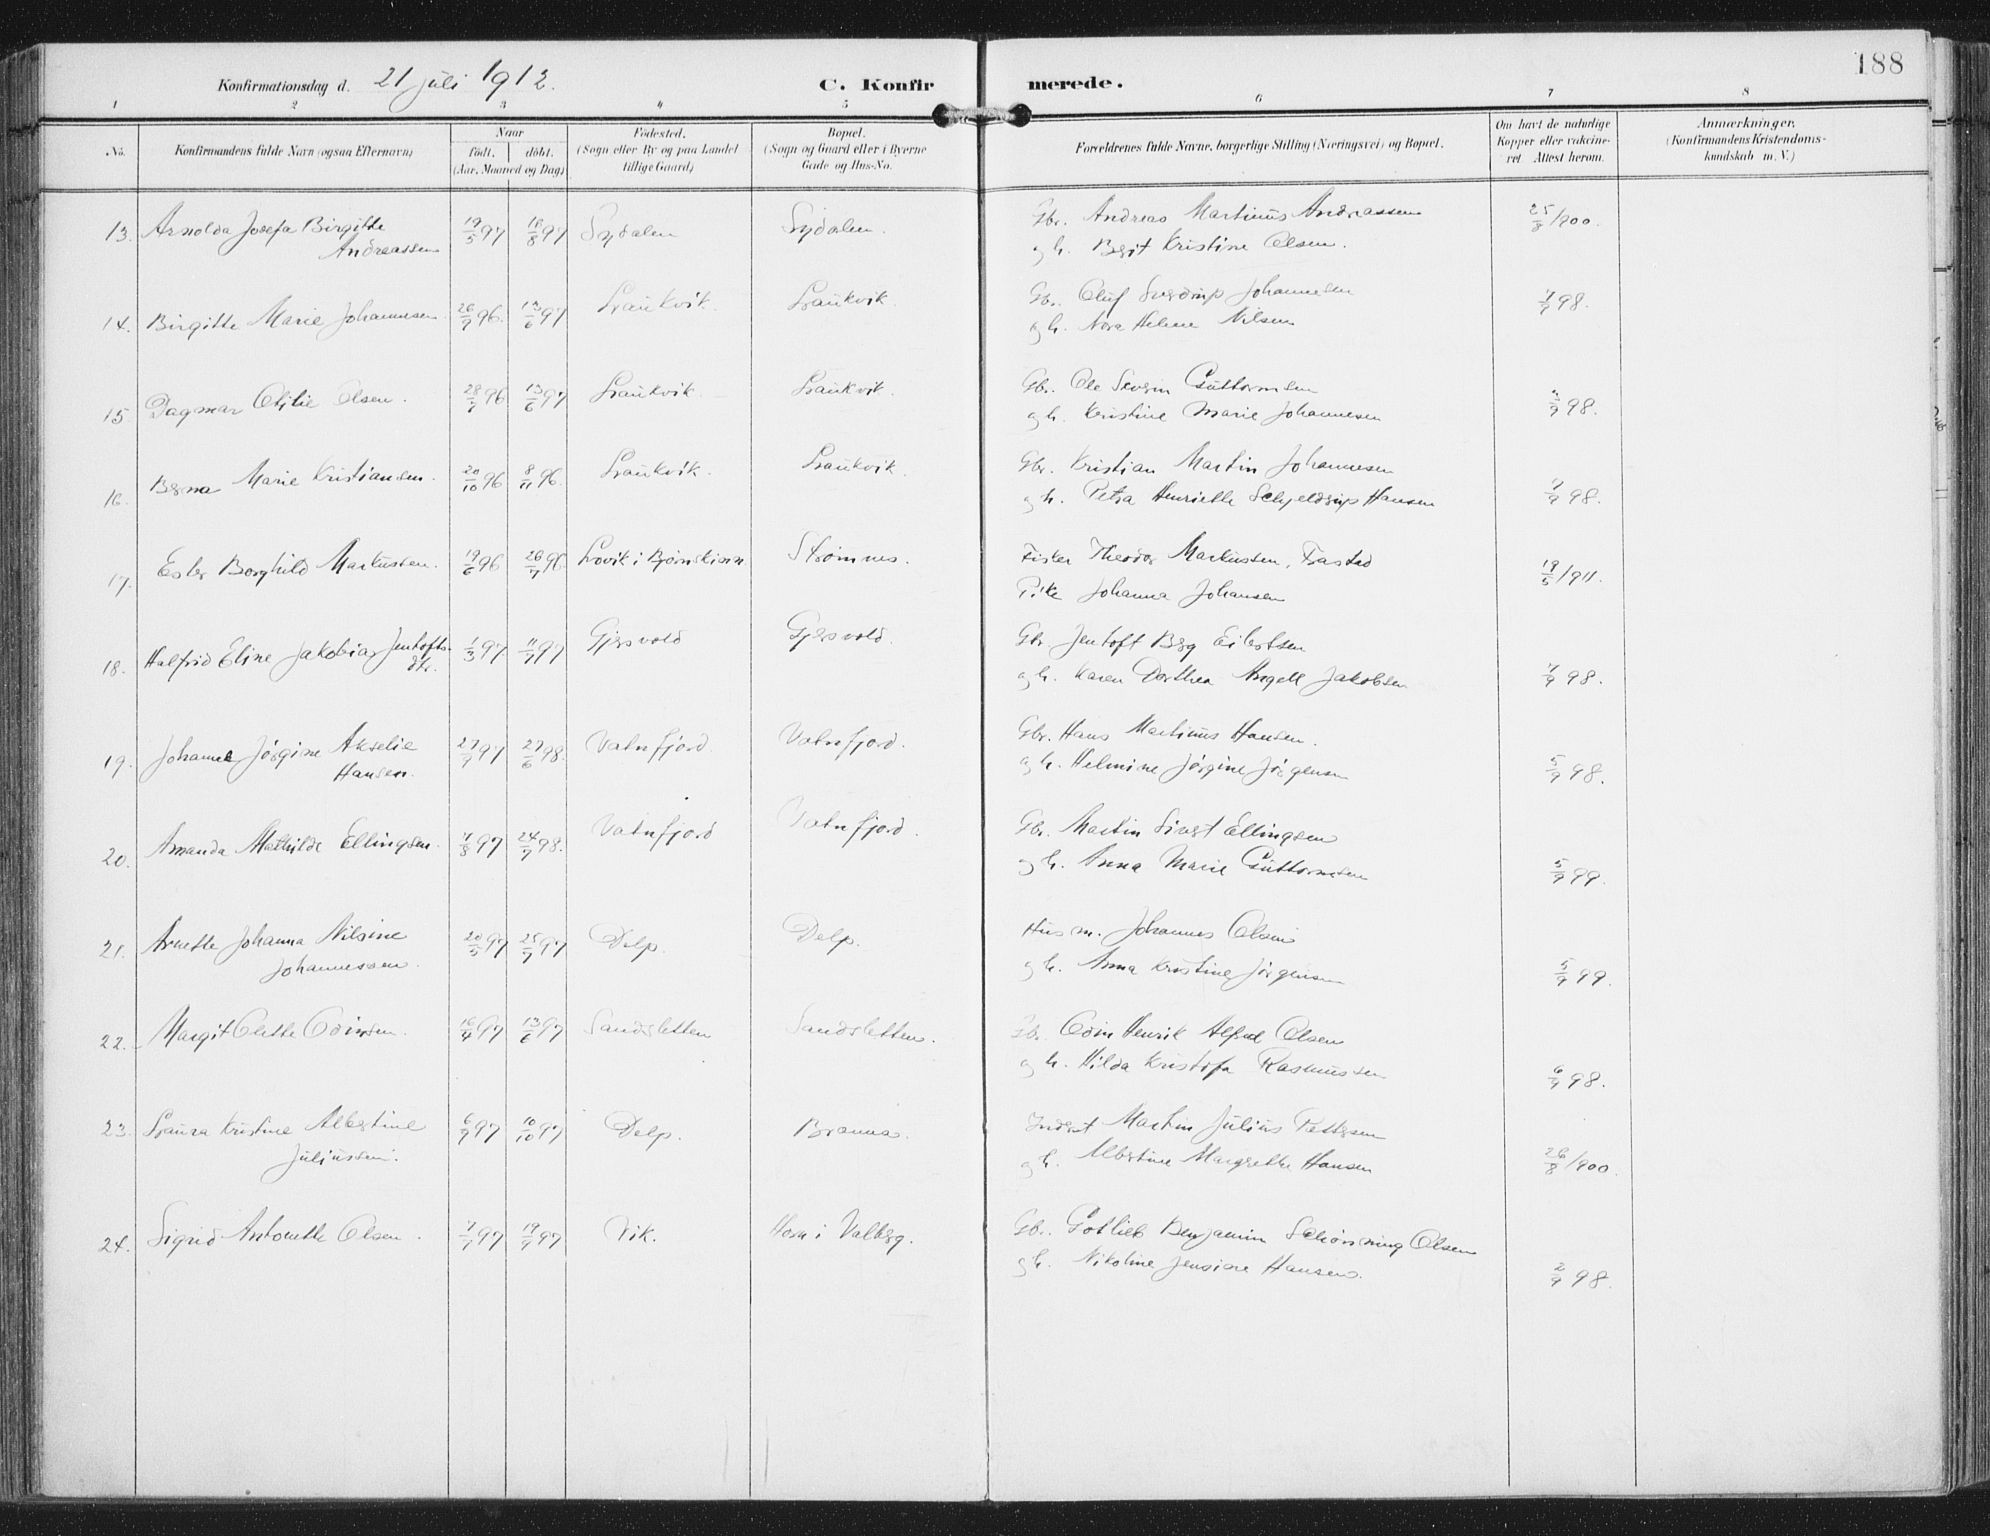 188
Konfirmationsdag d. 21 juli 1912. C. Konfirmerede.
1 2 3 4 5 6 7 8
No. Konfirmandens fulde Navn (ogsaa Efternavn) Naar født. døbt. (Aar, Maaned og Dag) Fødested. (Sogn eller By og paa Landet tillige Gaard) Bopæl. (Sogn og Gaard eller i Byerne Gade og Hus-No. Forældrenes fulde Navne, borgerlige Stilling (Næringsvei) og Bopæl. Om havt de naturlige Kopper eller vakcineret. Attest herom. Anmærkninger. (Konfirmandens Kristendomskundskab m. V.)
13. Arnolda Josefa Birgitte 19/5 97 18/8 97 Sydalen Sydalen. Gbr. Andreas Martinus Andreassen 25/8 /900.
Andreassen g h. Berit Kristine Olsen.
14. Birgitte Marie Johannesen. 26/9 96. 13/6 97 Laukvik. Laukvik. Gbr. Oluf Sverdrup Johannesen 7/9 98.
g h. Nora Helene Nilsen
15 Dagmar Otilie Olsen. 28/7 96 13/6 97 Laukvik. Laukvik. Gbr. Ole Severin Guttormsen
g h. Kristine Marie Johannesen 7/9 98.
16. Berna Marie Kristiansen. 20/10 96 8/11 96. Laukvik. Laukvik. Gbr. Kristian Martin Johannesen
g h. Petra Henriette Schjeldrup Hansen 7/9 98.
17. Ester Borghild Markussen. 19/6 96 26/7 96 Lovik i Bjørnskinn Strømnes. Fisker Theodor Markussen, Frastad 19/5 /911.
Pike Johanna Johansen
18. Halfrid Eline Jakobia Jentofts- 1/3 97 11/7 97 Gjersvold Gjersvold. Gbr Jentoft Berg Eilertsen
dtr. g h. Karen Dorthea Angell Jakobsen 7/9 98.
19. Johanne Jørgine Akselie 27/7 97 27/6 98. Vatnfjord Vatnfjord. Gbr. Hans Martinus Hansen.
Hansen. g h. Helmine Jørgine Jørgensen 5/9 98.
20. Amanda Mathilde Ellingsen. 4/8 97 24/7 98. Vatnfjord Vatnfjord. Gbr. Martin Sivert Ellingsen
g h. Anna Marie Guttormsen 5/9 99.
21. Arnette Johanna Nilsine 20/5 97 25/7 97 Delp. Delp. Husm. Johannes Olsen
Johannessen. g h. Anna Kristine Jørgensen 5/9 99.
22. Margit Olette Odinsen. 16/4 97 13/6 97 Sandsletten Sandsletten. Gbr. Odin Henrik Alfred Olsen
g h. Hilda Kristofa Rasmussen 6/9 98.
23. Laura Kristine Albertine 6/9 97 10/10 97 Delp. Branna. Inderst Martin Julius Pettersen
Juliussen. g h. Albertine Margrethe Hansen 26/8 /900.
24. Sigrid Antonette Olsen. 7/7 97 19/9 97 Vik. Horn i Valberg. Gbr. Gotlieb Benjamin Schønning Olsen
g h. Nikoline Jensine Hansen. 2/9 98.